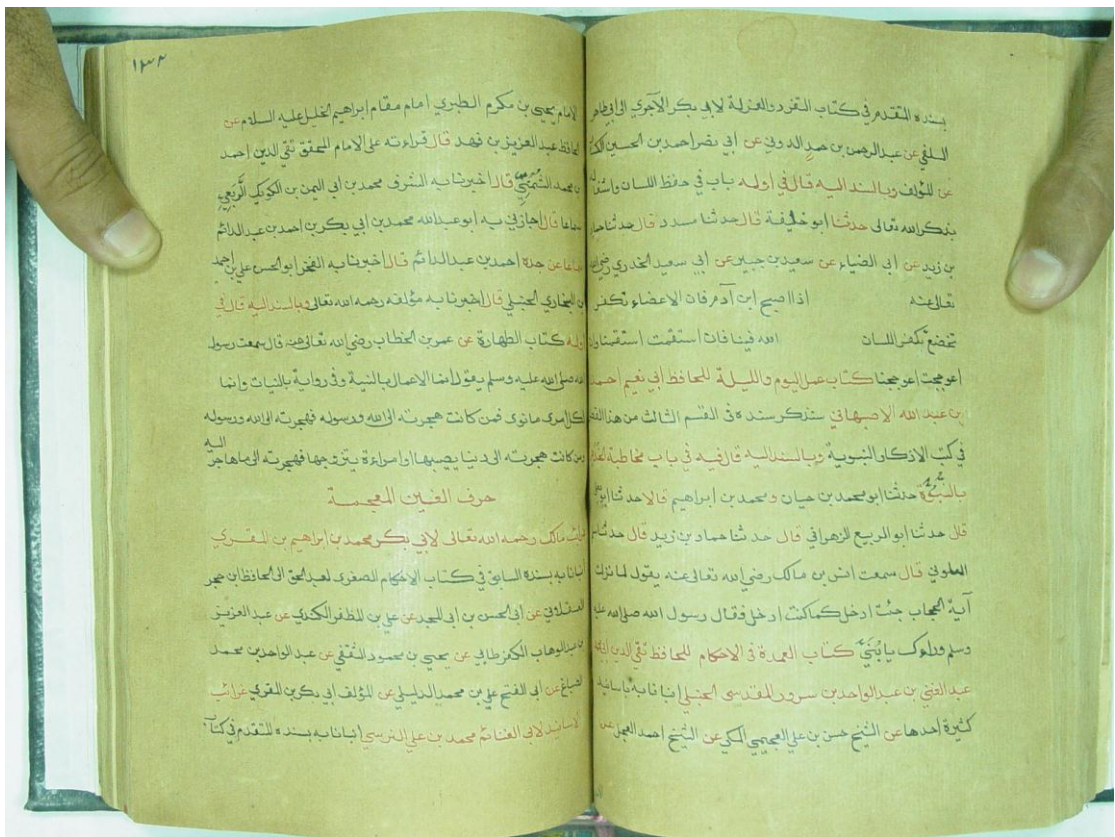 بسنده المتقدم في كتاب التفرد والعزلة لابي بكر الآجري الى ابي طاهر
السلفي عن عبد الرحمن بن حمد الدوني عن ابي نصر احمد بن الحسين الكسار
عن المؤلف وبالسند اليه قال في اوله باب في حفظ اللسان واشتغاله
بذكر الله تعالى حدثنا ابو خليفة قال حدثنا مسدد قال حدثنا حماد
بن زيد عن ابي الضياء عن سعيد بن جبير عن ابي سعيد الخدري رضي الله
تعالى عنه اذا اصبح ابن آدم فان الاعضاء تكفر
تخضع تكفر اللسان الله فينا فان استقمت استقمنا وان
اعوججت اعوججنا كتاب عمل اليوم والليلة للحافظ ابي نعيم احمد
بن عبد الله الاصبهاني سنذكر سنده في القسم الثالث من هذا
في كتب الاذكار النبوية وبالسند اليه قال فيه في باب مخاطبة
بالبنوة حدثنا ابو محمد بن حيان ومحمد بن ابراهيم قالا حدثنا ابو
قال حدثنا ابو الربيع الزهراني قال حدثنا حماد بن زيد قال حدثنا
العلوني قال سمعت انس بن مالك رضي الله تعالى عنه يقول لما نزلت
آية الحجاب جئت ادخل كما كنت ادخل فقال رسول الله صلى الله عليه
وسلم وراءك يا بني كتاب العمدة في الاحكام للحافظ تقي الدين ابي محمد
عبد الغني بن عبد الواحد بن سرور المقدسي الحنبلي انبانا به باسانيد
كثيرة احدها عن الشيخ حسن بن علي العجيمي المكي عن الشيخ احمد العجل عن
١٣٢
الامام يحيى بن مكرم الطبري امام مقام ابراهيم الخليل عليه السلام عن
الحافظ عبد العزيز بن فهد قال قراءته على الامام المحقق تقي الدين احمد
بن محمد الشمني قال اخبرنا به الشرف محمد بن ابي اليمن بن الكويك الربعي
سماعا قال اجازني به ابو عبد الله محمد بن ابي بكر بن احمد بن عبد الدائم
سماعا عن جده احمد بن عبد الدائم قال اخبرنا به الفخر ابو الحسن علي بن احمد
بن البخاري الحنبلي قال اخبرنا به مؤلفه رحمه الله تعالى وبالسند اليه قال في
اوله كتاب الطهارة عن عمر بن الخطاب رضي الله تعالى عنه قال سمعت رسول
الله صلى الله عليه وسلم يقول انما الاعمال بالنية وفي رواية بالنيات وانما
لكل امرئ ما نوى فمن كانت هجرته الى الله ورسوله فهجرته الى الله ورسوله
ومن كانت هجرته الى دنيا يصيبها او امراءة يتزوجها فهجرته الى ما هاجر اليه
حرف الغين المعجمة
غرائب مالك رحمه الله تعالى لابي بكر محمد بن ابراهيم بن المقري
انبانا به بسنده السابق في كتاب الاحكام الصغرى لعبد الحق الى الحافظ ابن حجر
العسقلاني عن ابي الحسن بن ابي المجد عن علي بن المظفر الكندي عن عبد العزيز
بن عبد الوهاب الكفرطابي عن يحيى بن محمود الثقفي عن عبد الواحد بن محمد
الصباغ عن ابي الفتح علي بن محمد الدليلي عن المؤلف ابي بكر بن المقري غرائب
الاسانيد لابي الغنائم محمد بن علي النرسي انبانا به بسنده المتقدم في كتاب